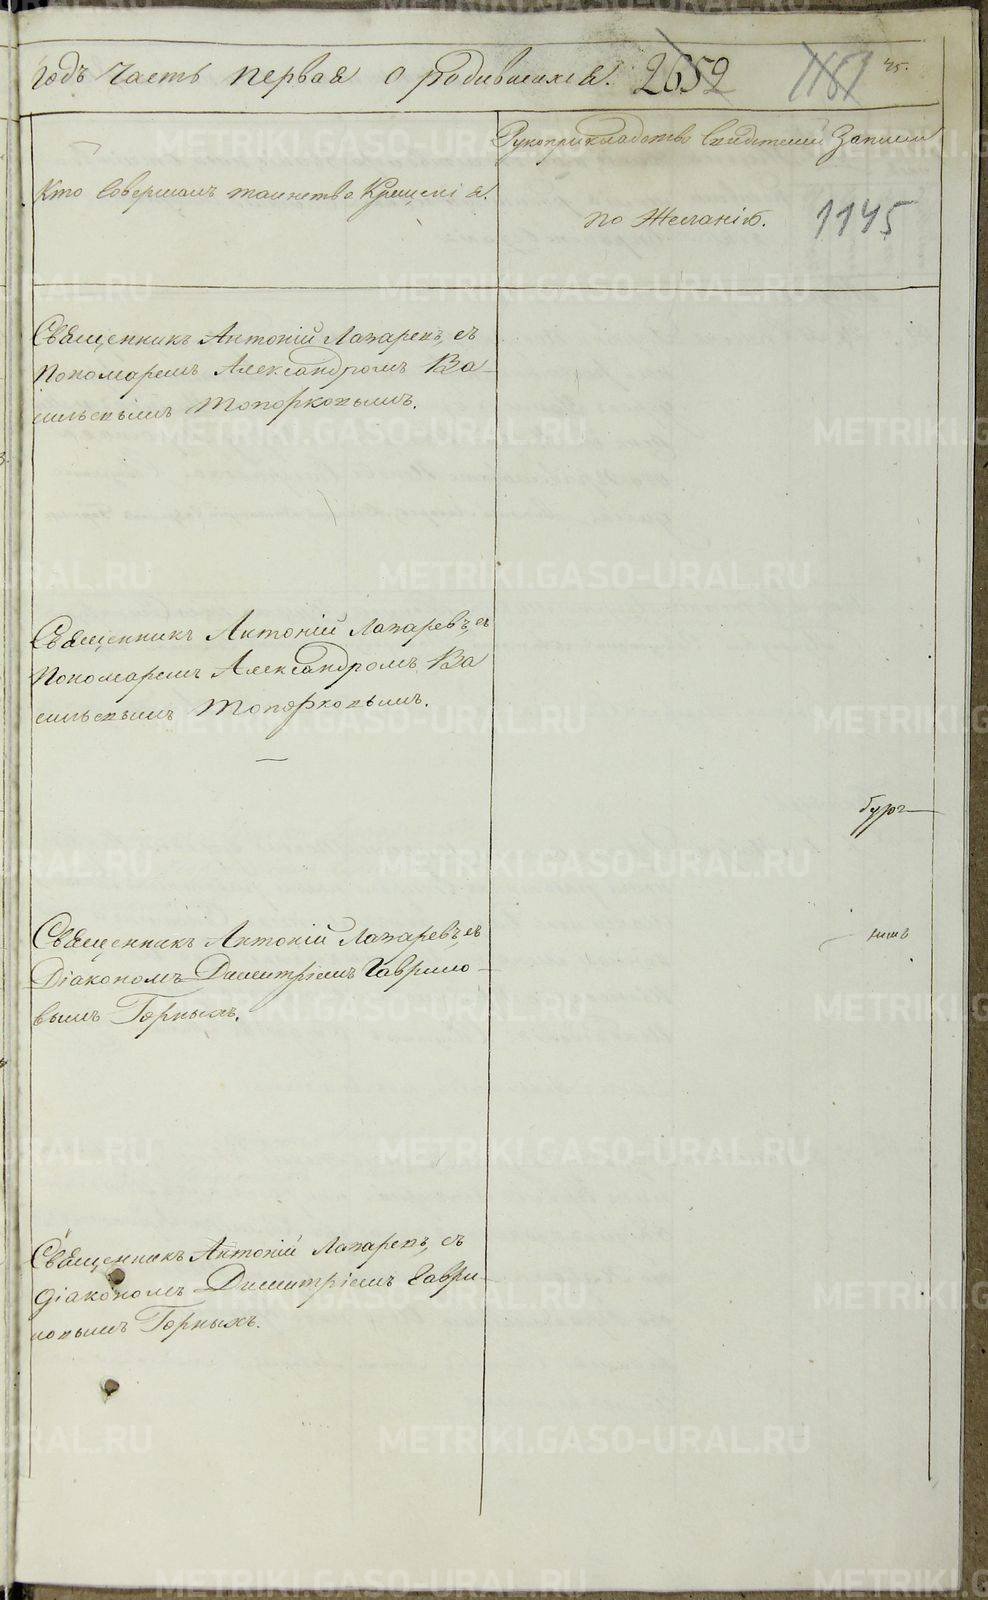 годъ часть первая о родившихся. 2652 1181 45.
Кто совершалъ таинство Крещенія.
Рукоприкладство свидетелей записи
по Желанію. 1145
Священникъ Антоній Лазаревъ, съ
Пономаремъ Александромъ Ва-
сильевымъ Топорковымъ.
Священникъ Антоній Лазаревъ, съ
Пономаремъ Александромъ Ва
сильевымъ Топорковымъ.
бург
Священникъ Антоній Лазаревъ, съ
Діакономъ Димитріемъ Гаврило-
вымъ Горныхъ.
Священникъ Антоній Лазаревъ, съ
діакономъ Димитріемъ Гаври-
ловымъ Горныхъ.
METRIKI.GASO-URAL.RU